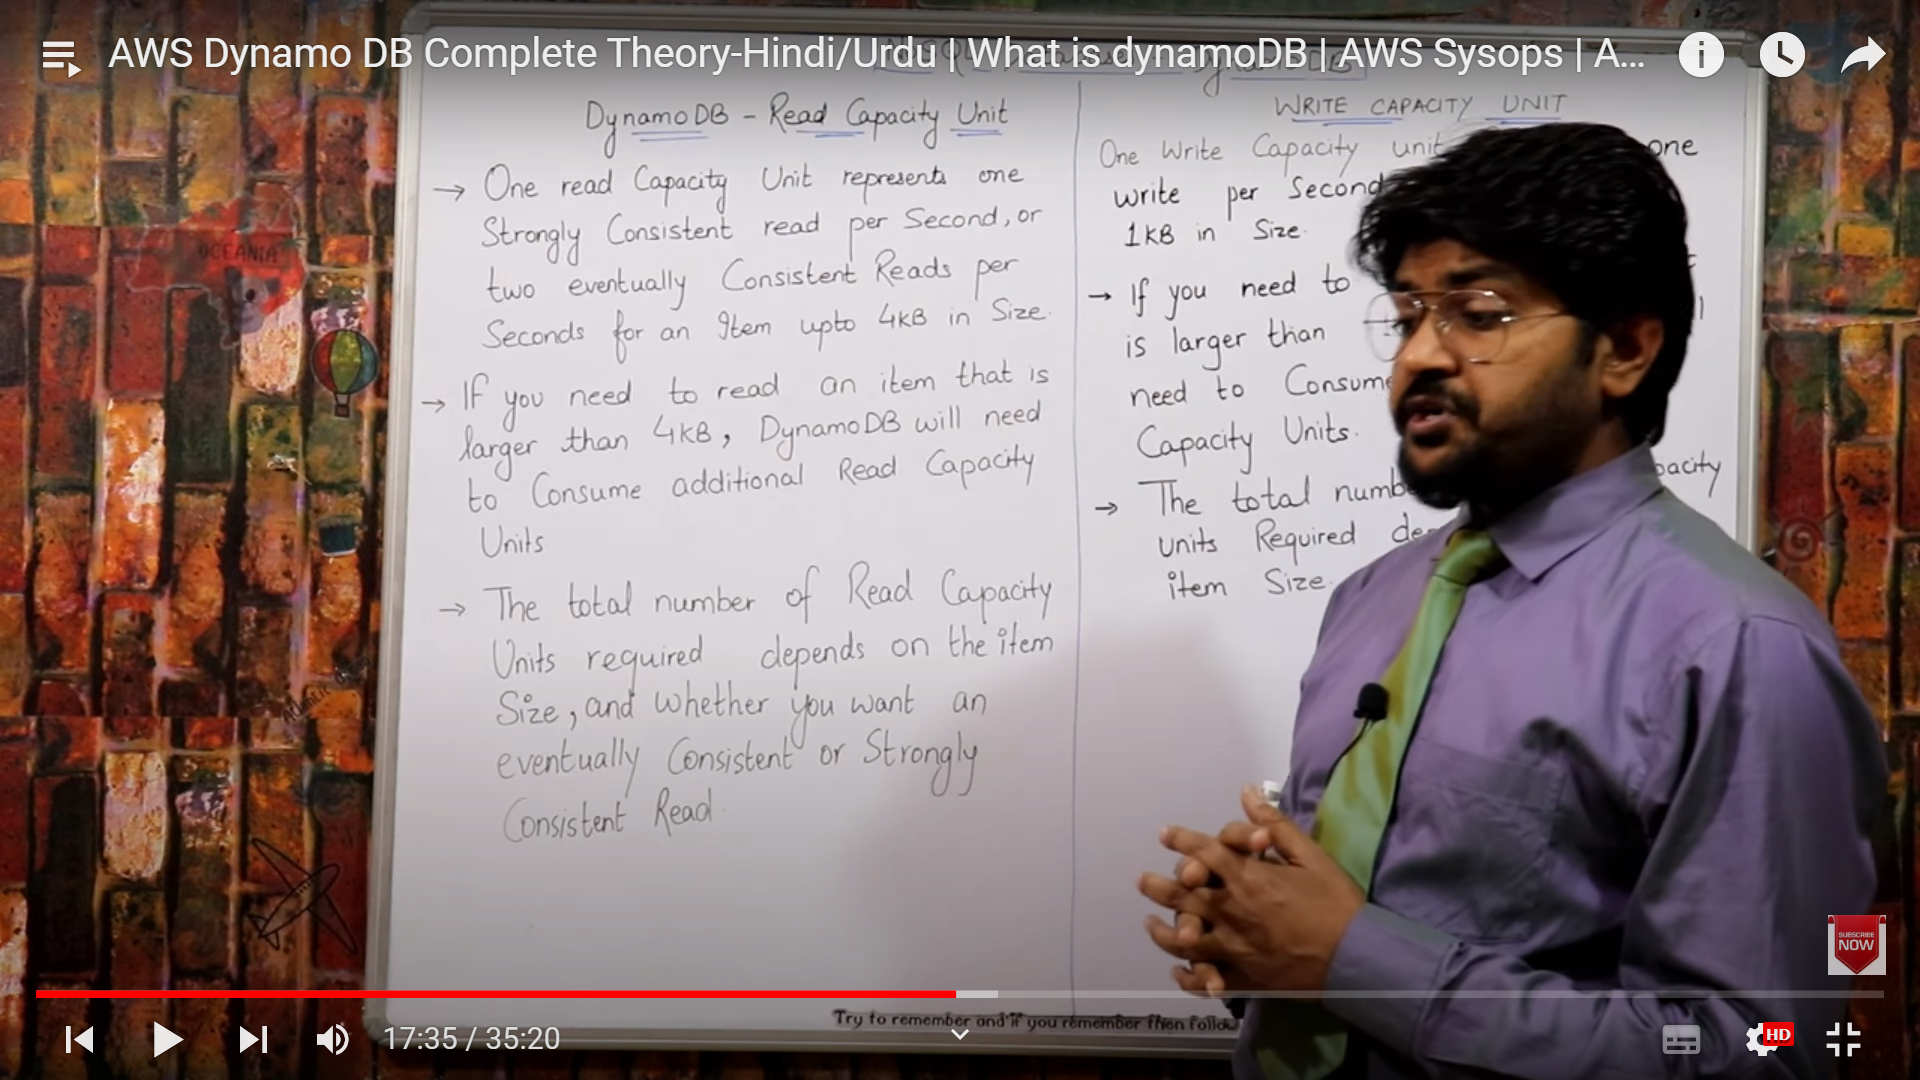 AWS Dynamo DB Complete Theory-Hindi/Urdu | What is dynamoDB | AWS Sysops | A...
DynamoDB - Read Capacity Unit
→ One read Capacity Unit represents one
Strongly Consistent read per Second, or
two eventually Consistent Reads per
Seconds for an Item upto 4KB in Size.
→ If you need to read an item that is
larger than 4KB, DynamoDB will need
to Consume additional Read Capacity
Units
→ The total number of Read Capacity
Units required depends on the item
Size, and whether you want an
eventually Consistent or Strongly
Consistent Read.
WRITE CAPACITY UNIT
One Write Capacity unit one
write per Second
1KB in Size.
→ If you need to
is larger than
need to Consume
Capacity Units.
→ The total
units Required
item Size.
OCEANIA
Try to remember and if you remember then
SUBSCRIBE
NOW
17:35 / 35:20
HD